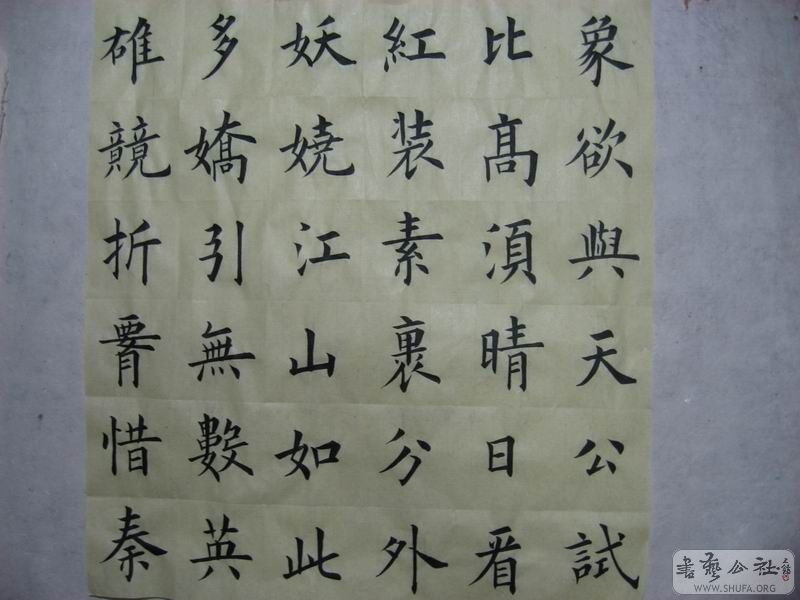 象欲與天公試
比髙湏晴日看
紅装素裹分外
妖娆江山如此
多嬌引無數英
雄競折腰惜秦
書藝公社
WWW.SHUFA.ORG